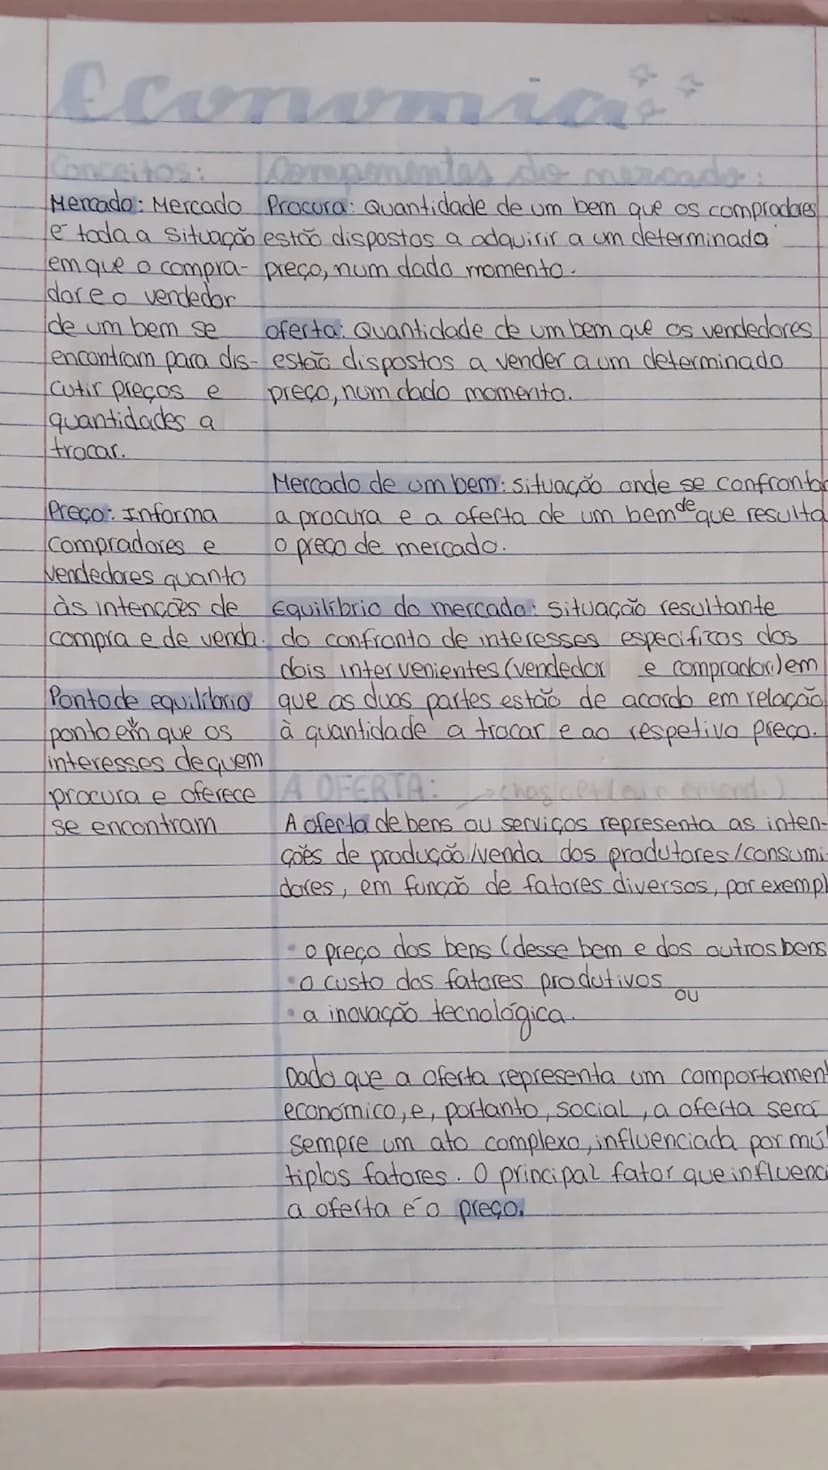 Economia
Conceitos:
Mercado: Mercado
é toda a situação
em que o compra-
dor e o vendedor
de um bem se
encontram para dis-
cutir preços e
quantidades a
trocar.
Preço: Informa
compradores e
vendedores quanto
às intenções de
compra e de venda.
Ponto de equilíbrio
ponto em que os
interesses de quem
procura e oferece
se encontram
Componentes do mercado:
Procura: Quantidade de um bem que os compradores
estão dispostos a adquirir a um determinado
preço, num dado momento.
oferta: Quantidade de um bem que os vendedores
estão dispostos a vender a um determinado
preço, num dado momento.
Mercado de um bem: situação onde se confronta
a procura e a oferta de um bem de que resulta
o preço de mercado.
Equilíbrio do mercado: Situação resultante
do confronto de interesses especificos dos
dois intervenientes (vendedor e comprador) em
que as duas partes estão de acordo em relação
à quantidade a trocar e ao respetivo preço.
A OFERTA:
A oferta de bens ou serviços representa as inten-
ções de produção/venda dos produtores/consumi-
dores, em função de fatores diversos, por exempl
• o preço dos bens (desse bem e dos outros bens
• o custo dos fatores produtivos ou
• a inovação tecnológica.
Dado que a oferta representa um comportamen
económico, e, portanto, social, a oferta será
sempre um ato complexo, influenciada por múl
tiplos fatores. O principal fator que influenci
a oferta é o preço.